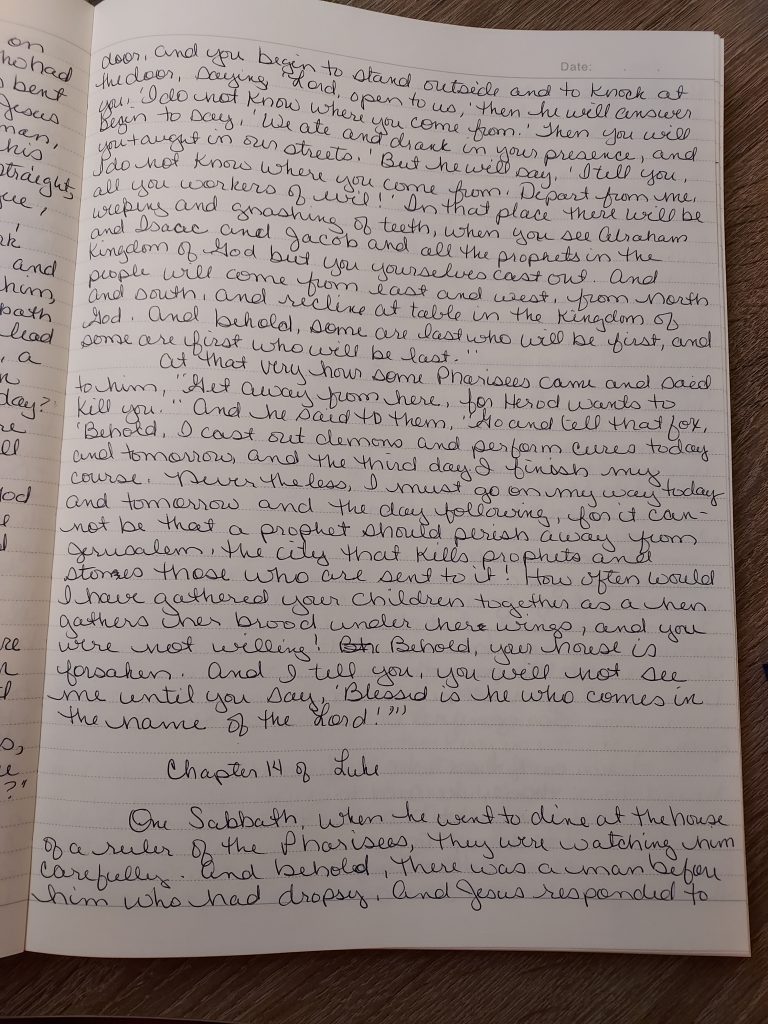 on
who had
bent
Jesus
man,
his
straight,
gue,
and
him,
bath
lead
, a
day?
re
ll
God
re
?"
Date:
door, and you begin to stand outside and to knock at
the door, saying 'Lord, open to us,' then he will answer
you, 'I do not know where you come from.' Then you will
begin to say, 'We ate and drank in your presence, and
you taught in our streets.' But he will say, 'I tell you,
I do not know where you come from. Depart from me,
all you workers of evil!' In that place there will be
weeping and gnashing of teeth, when you see Abraham
and Isaac and Jacob and all the prophets in the
Kingdom of God but you yourselves cast out. And
people will come from east and west, from north
and south, and recline at table in the Kingdom of
God. And behold, some are last who will be first, and
some are first who will be last."
At that very hour some Pharisees came and said
to him, "Get away from here, for Herod wants to
kill you." And he said to them, "Go and tell that fox,
'Behold, I cast out demons and perform cures today
and tomorrow, and the third day I finish my
course. Never the less, I must go on my way today
and tomorrow and the day following, for it can-
not be that a prophet should perish away from
Jerusalem, the city that kills prophets and
stones those who are sent to it! How often would
I have gathered your children together as a hen
gathers her brood under her wings, and you
were not willing! Behold, your house is
forsaken. And I tell you, you will not see
me until you say, 'Blessed is he who comes in
the name of the Lord!'"'
Chapter 14 of Luke
One Sabbath, when he went to dine at the house
of a ruler of the Pharisees, they were watching him
carefully. And behold, there was a man before
him who had dropsy, And Jesus responded to